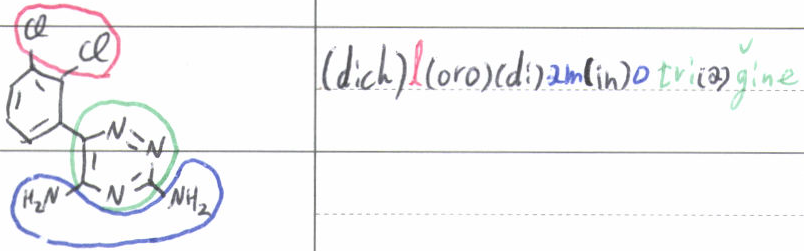 Cl
Cl
N
N
H₂N
N
NH₂
(dich)l(oro)(di)am(in)o tri(a)gine